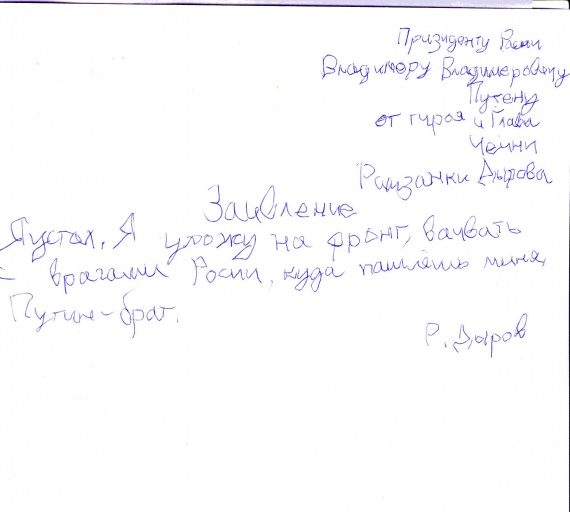 Призиденту Расии
Владимеру Владимеровичу
Путену
от гироя и Глава
Чечни
Рамзанки Дырова
Заивление
Яустал. Я ухожу на фронг, ваивать
с врагами Росии, куда пашлёшь миня,
Путин-брат.
Р. Дыров